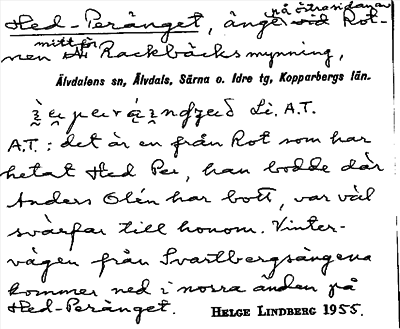 Hed-Peränget, änge på östra sidan av Rot-
nen mitt för Rackbäcks mynning,
Älvdalens sn, Älvdals, Särna o. Idre tg, Kopparbergs län.
Li. A.T.
A.T.: det är en från Rot som har
hetat Hed Per, han bodde där
Anders Olén har bott, var väl
svärfar till honom. Vinter-
vägen från Svartbergsängena
kommer ned i norra änden på
Hed-Peränget. HELGE LINDBERG 1955.